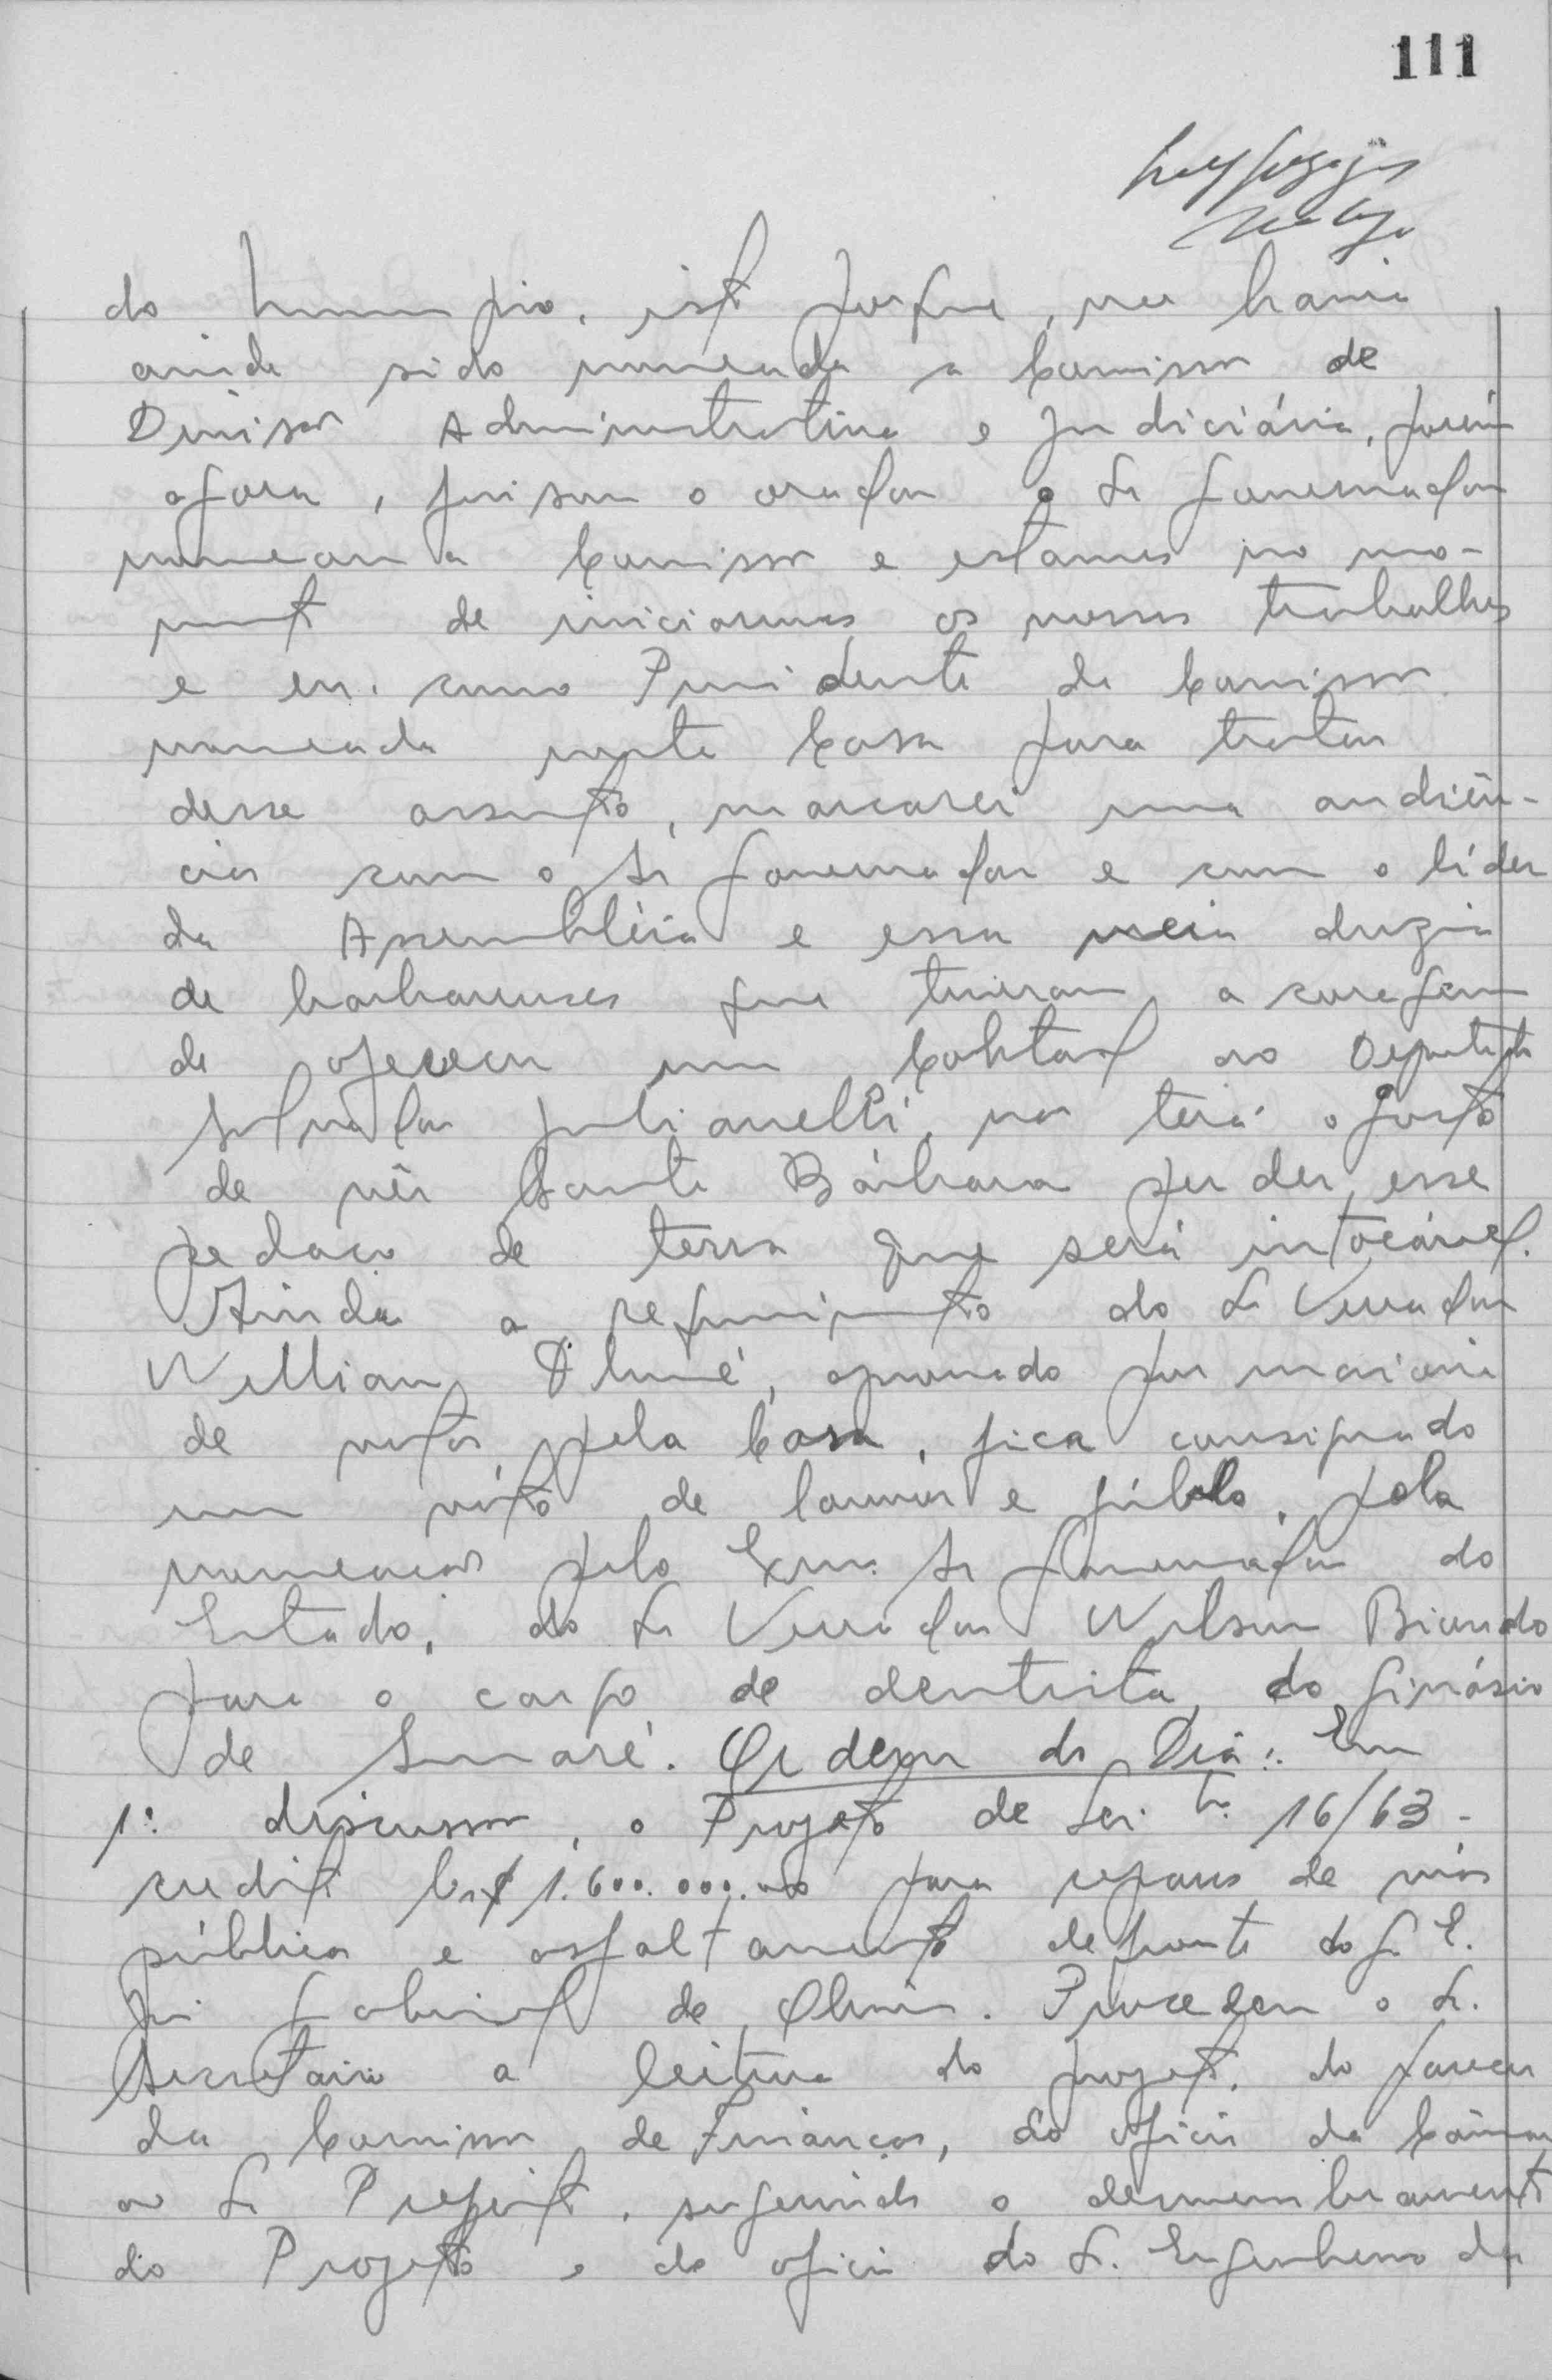 111
do Municipio, isto porque, não havia
ainda sido nomeada a Comissão de
Divisão Administrativa e Judiciária, porém
agora, frisou o orador o Sr Governador
nomeou a Comissão e estamos no mo-
mento de iniciarmos os nossos trabalhos
e eu, como Presidente da Comissão
nomeada nesta Casa para tratar
desse assunto, marcarei uma audiên-
cia com o Sr Governador e com o líder
da Assembléia e essa meia duzia
de barbarenses que tiveram a coragem
de oferecer um Cokitail ao Deputado
Salvador Julianelli, não terá o gosto
de vêr Santa Bárbara perder esse
pedaço de terra que será intocável.
Ainda a requerimento do Sr Vereador
Willian aprovado por maioria
de votos pela Casa, fica consignado
um vóto de louvor e júbilo, pela
nomeação pelo Exmo. Sr Governador do
Estado, do Sr Vereador Wilson
para o cargo de dentista do Ginásio
de Sumaré. Ordem do Dia: Em
1ª discussão, o Projeto de Lei nº 16/63 -
credito Cr$ 1.600.000,00 para reparos de vias
pública e asfaltamento defronte do G. E.
Gabriel de Procedeu o Sr.
Secretário a leitura do projeto, do parecer
da Comissão de Finanças, do oficio da Câmara
ao Sr Prefeito, sugerindo o desmembramento
do Projeto e do oficio do Sr. Engenheiro da